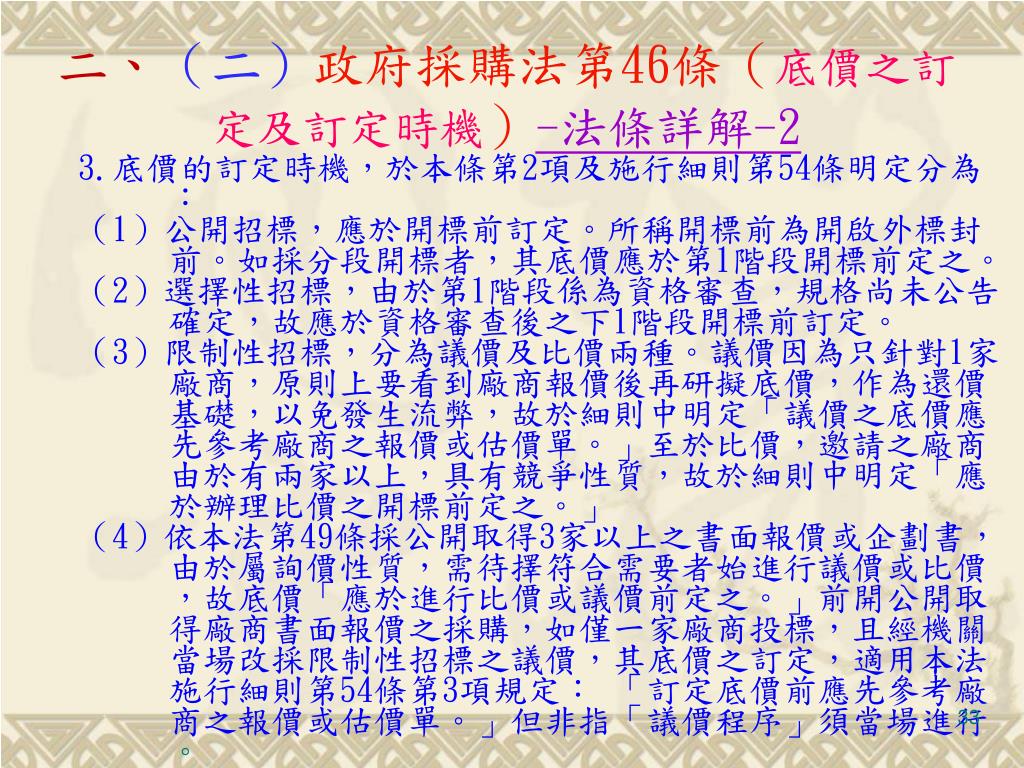 二、（二）政府採購法第46條（底價之訂
定及訂定時機）-法條詳解-2
3.底價的訂定時機，於本條第2項及施行細則第54條明定分為
：
（1）公開招標，應於開標前訂定。所稱開標前為開啟外標封
前。如採分段開標者，其底價應於第1階段開標前定之。
（2）選擇性招標，由於第1階段係為資格審查，規格尚未公告
確定，故應於資格審查後之下1階段開標前訂定。
（3）限制性招標，分為議價及比價兩種。議價因為只針對1家
廠商，原則上要看到廠商報價後再研擬底價，作為還價
基礎，以免發生流弊，故於細則中明定「議價之底價應
先參考廠商之報價或估價單。」至於比價，邀請之廠商
由於有兩家以上，具有競爭性質，故於細則中明定「應
於辦理比價之開標前定之。」
（4）依本法第49條採公開取得3家以上之書面報價或企劃書，
由於屬詢價性質，需待擇符合需要者始進行議價或比價
，故底價「應於進行比價或議價前定之。」前開公開取
得廠商書面報價之採購，如僅一家廠商投標，且經機關
當場改採限制性招標之議價，其底價之訂定，適用本法
施行細則第54條第3項規定：「訂定底價前應先參考廠
商之報價或估價單。」但非指「議價程序」須當場進行
。